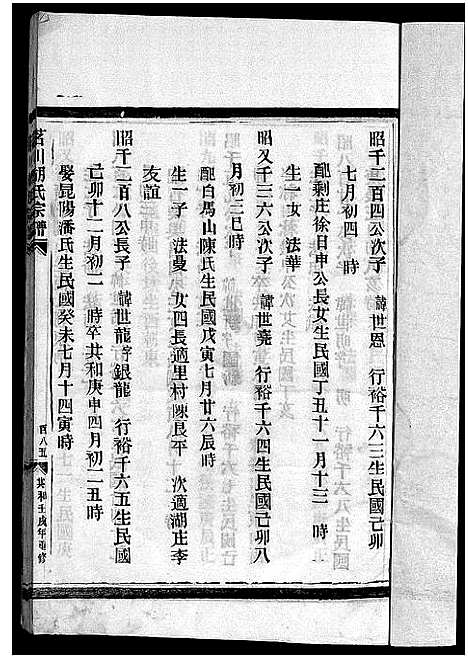 昭千二百四公次子 諱世恩 行裕千六三生民國己卯
七月初四 時
配剩庄徐日申公長女生民國丁丑十一月十三 時
生一女 法華
昭又千三六公次子 諱世堯 行裕千六四生民國己卯八
月初三巳時
配白馬山陳氏生民國戊寅七月廿六辰時
生一子 法曼 女四長適里村陳良平 次適湖庄李
友誼
昭千二百八公長子 諱世龍 號銀龍 行裕千六五生民國
己卯十二月初二 時卒共和庚申四月初二丑時
娶昆陽潘氏生民國癸未七月十四寅時
茗川胡氏宗譜
百八五
共和壬戌年重修